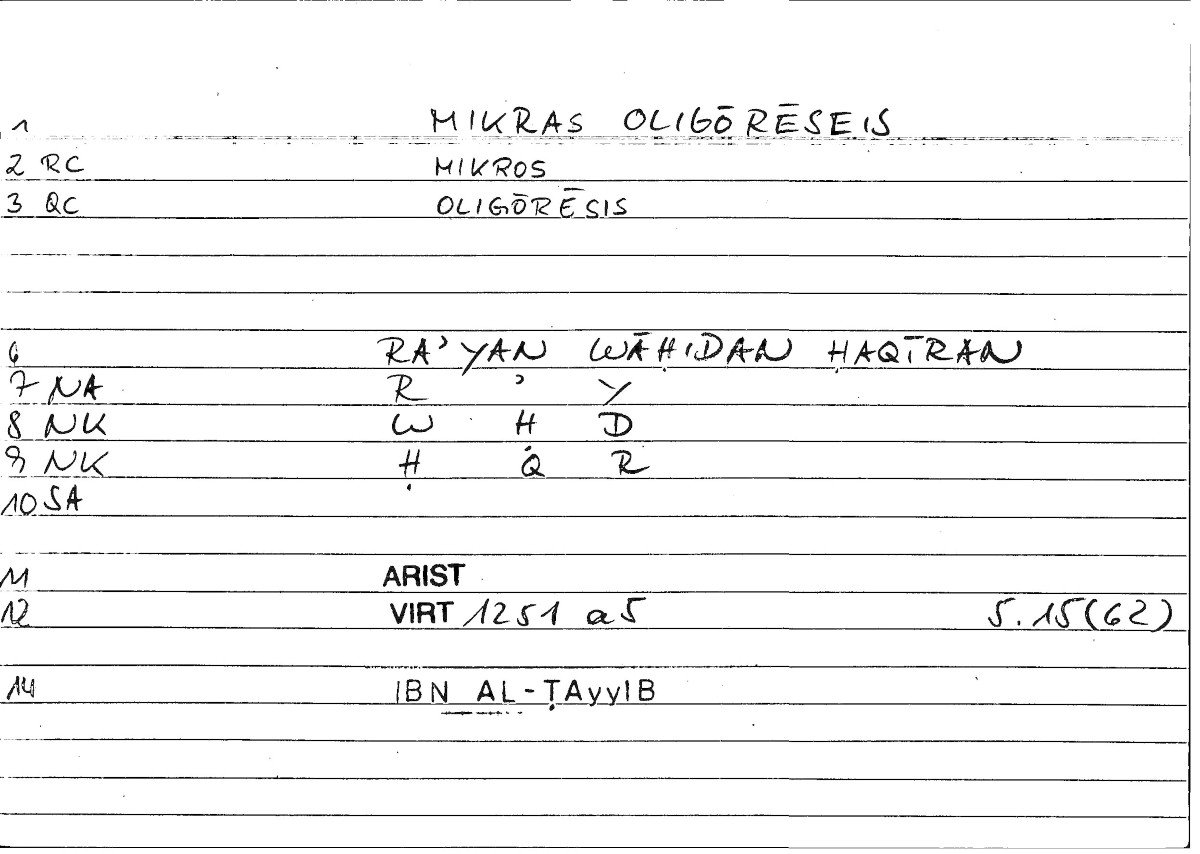 1 MIKRAS OLIGŌRĒSEIS
2 RC MIKROS
3 QC OLIGŌRĒSIS
6 RA’YAN WĀḤIDAN ḤAQĪRAN
7 NA R ’ Y
8 NK W Ḥ D
9 NK Ḥ Q R
10 SA
11 ARIST
12 VIRT 1251 a5 5.15(62)
14 IBN AL-ṬAyyIB